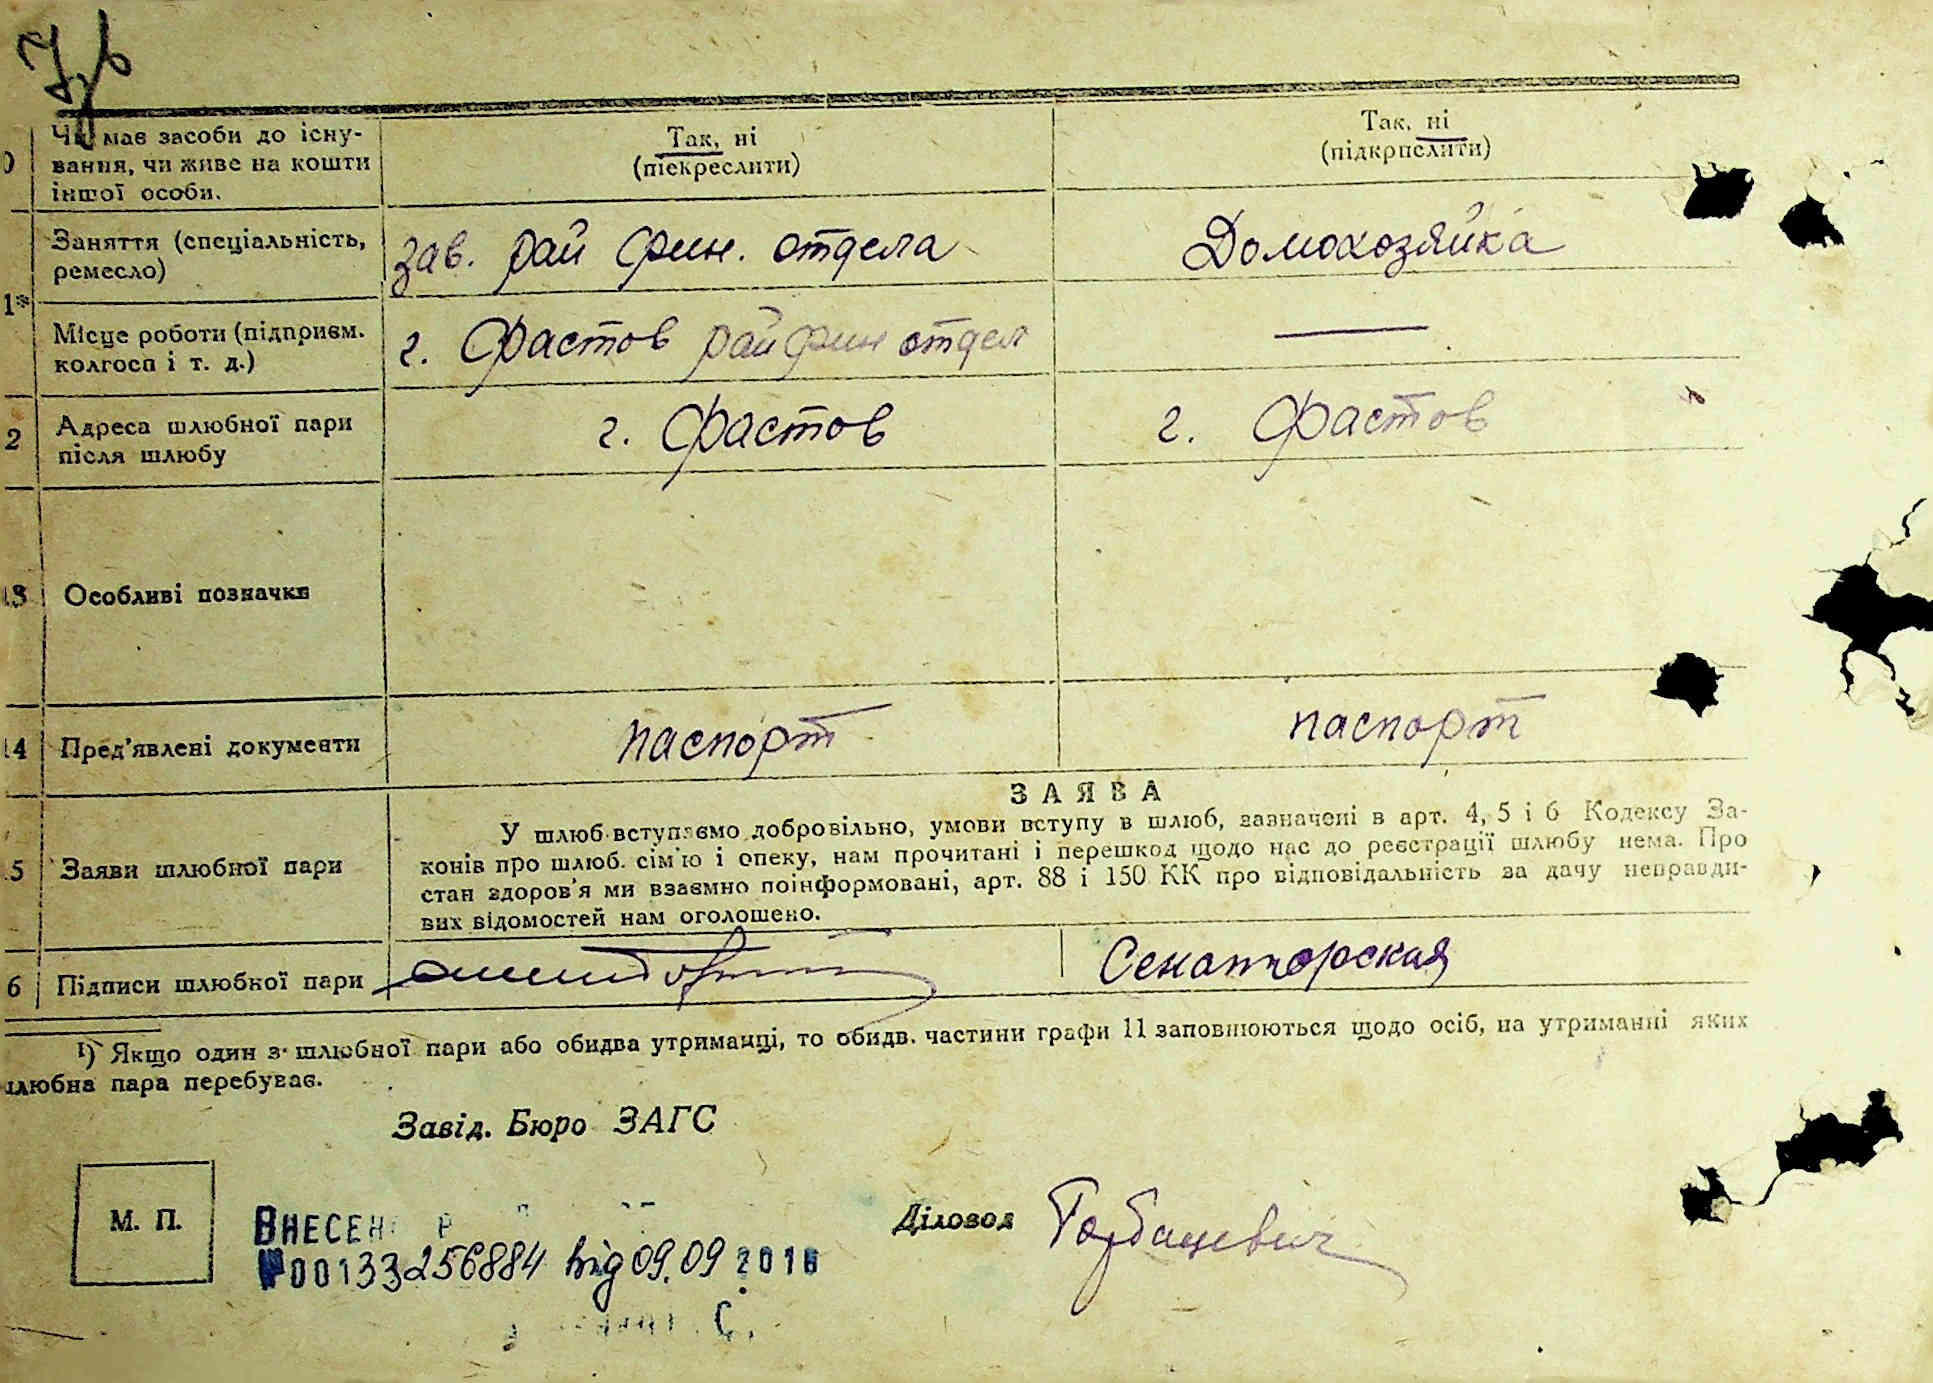 Чи має засоби до існу-
вання, чи живе на кошти
іншої особи.
Так, ні
(піекреслити)
Так, ні
(підкрпслити)
1*
Заняття (спеціальність,
ремесло)
зав. рай фин. отдела
Домохозяйка
Місце роботи (підприєм.
колгосп і т. д.)
г. Фастов райфин отдел
2
Адреса шлюбної пари
після шлюбу
г. Фастов
г. Фастов
13
Особливі позначки
14
Пред'явлені документи
паспорт
паспорт
ЗАЯВА
5
Заяви шлюбної пари
У шлюб вступаємо добровільно, умови вступу в шлюб, зазначені в арт. 4, 5 і 6 Кодексу За-
конів про шлюб. сім'ю і опеку, нам прочитані і перешкод щодо нас до реєстрації шлюбу нема. Про
стан здоров'я ми взаємно поінформовані, арт. 88 і 150 КК про відповідальність за дачу неправди-
вих відомостей нам оголошено.
6
Підписи шлюбної пари
Сенаторская
¹) Якщо один з шлюбної пари або обидва утриманці, то обидв. частини графи 11 заповнюються щодо осіб, на утриманні яких
шлюбна пара перебуває.
Завід. Бюро ЗАГС
М. П.
Діловод Горбацевич
ВНЕСЕН
№00133256884 від 09.09 2016